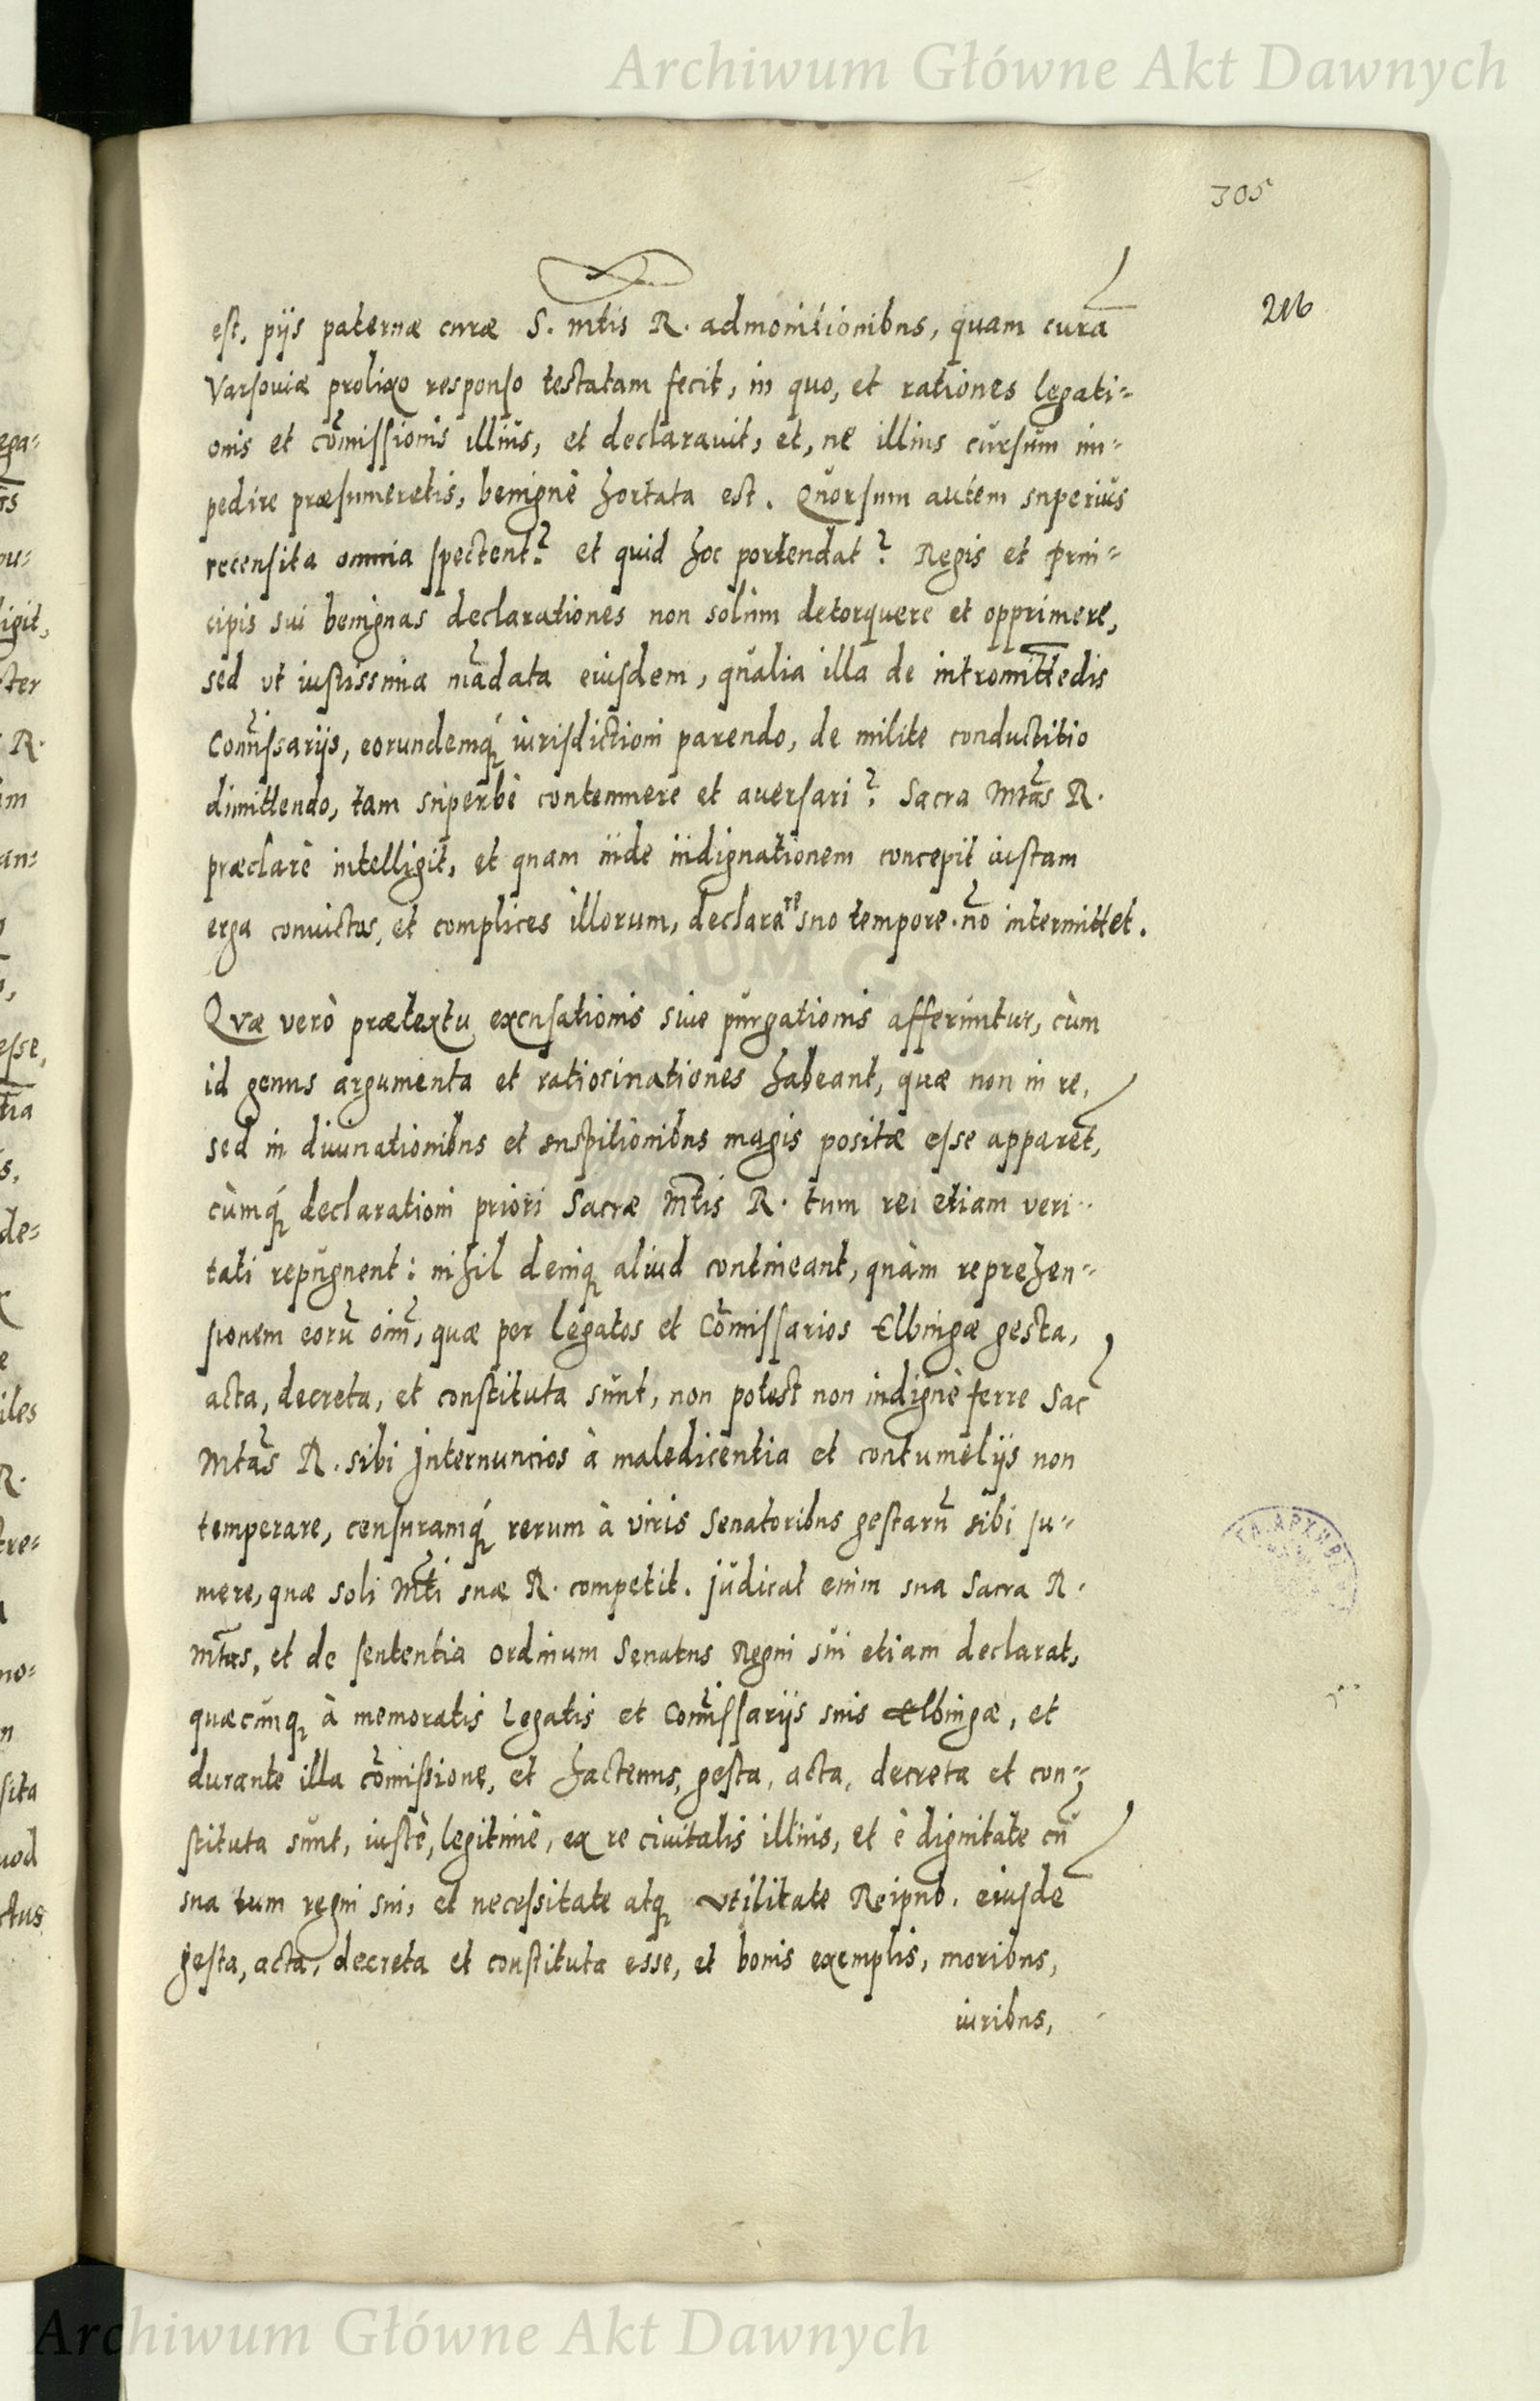 Archiwum Główne Akt Dawnych
305
216
est, pijs paternæ curæ S. Mtis R. admonitionibus, quam curã
Varsoviæ prolixo responso testatam fecit, in quo, et rationes legati=
onis et cõmissionis illius, et declaravit, et, ne illius cursum im=
pedire præsumeretis, benignè hortata est. Quorsum autem superius
recensita omnia spectent? et quid hoc portendat? Regis et Prin=
cipis sui benignas declarationes non solùm detorquere et opprimere,
sed vt iustissima mãdata eiusdem, qualia illa de intromittẽdis
Com̃issarijs, eorundemq́ iurisdictioni parendo, de milite conductitio
dimittendo, tam superbè contemnere et aversari? Sacra Mtãs R.
præclarè intelligit, et quam inde indignationem concepit iustam
erga convictos, et complices illorum, declarare suo tempore nõ intermittet.
Qvæ verò prætextu excusationis sive purgationis afferuntur, cùm
id genus argumenta et ratiocinationes habeant, quæ non in re,
sed in divinationibus et suspitionibus magis positæ esse apparet,
cùmq́ declarationi priori Sacræ Mtis R. tum rei etiam veri=
tati repugnent: nihil deniq aliud contineant, quàm reprehen=
sionem eorũ oim̃, quæ per legatos et Cõmissarios Elbingæ gesta,
acta, decreta, et constituta sunt, non potest non indignè ferre Sac
Mtãs R. sibi Internuncios à maledicentia et contumelijs non
temperare, censuramq́ rerum à viris Senatoribus gestarũ sibi su=
mere, quæ soli Mti suæ R. competit. Judicat enim sua Sacra R.
Mtas, et de sententia Ordinum Senatus Regni sui etiam declarat,
quæcunq à memoratis Legatis et Com̃issarijs suis Elbingæ, et
durante illa cõmissione, et hactenus, gesta, acta, decreta et con=
stituta sunt, iustè, legitimè, ex re civitatis illius, et è dignitate cũ
sua tum regni sui, et necessitate atq vtilitate Reipub. eiusdẽ
gesta, acta, decreta et constituta esse, et bonis exemplis, moribus,
iuribus,
Archiwum Główne Akt Dawnych